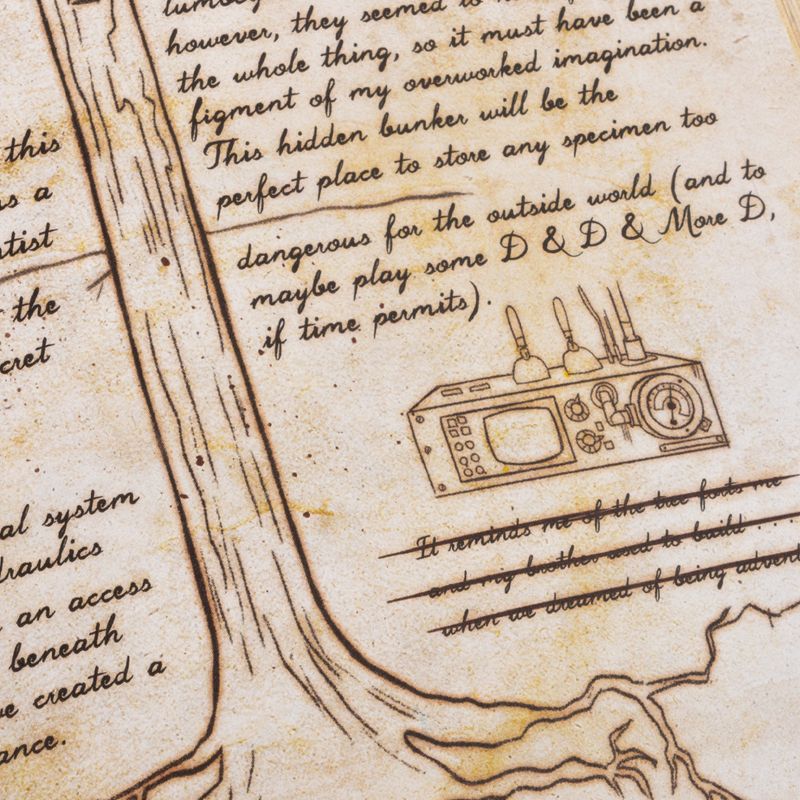 however, they seemed to
the whole thing, so it must have been a
figment of my overworked imagination.
This hidden bunker will be the
perfect place to store any specimen too
dangerous for the outside world (and to
maybe play some D & D & More D,
if time permits).
It reminds me of the tree forts me
and my brother used to build . . .
when we dreamed of being advent
this
as a
ntist
the
cret
al system
draulics
an access
beneath
ve created a
ance.